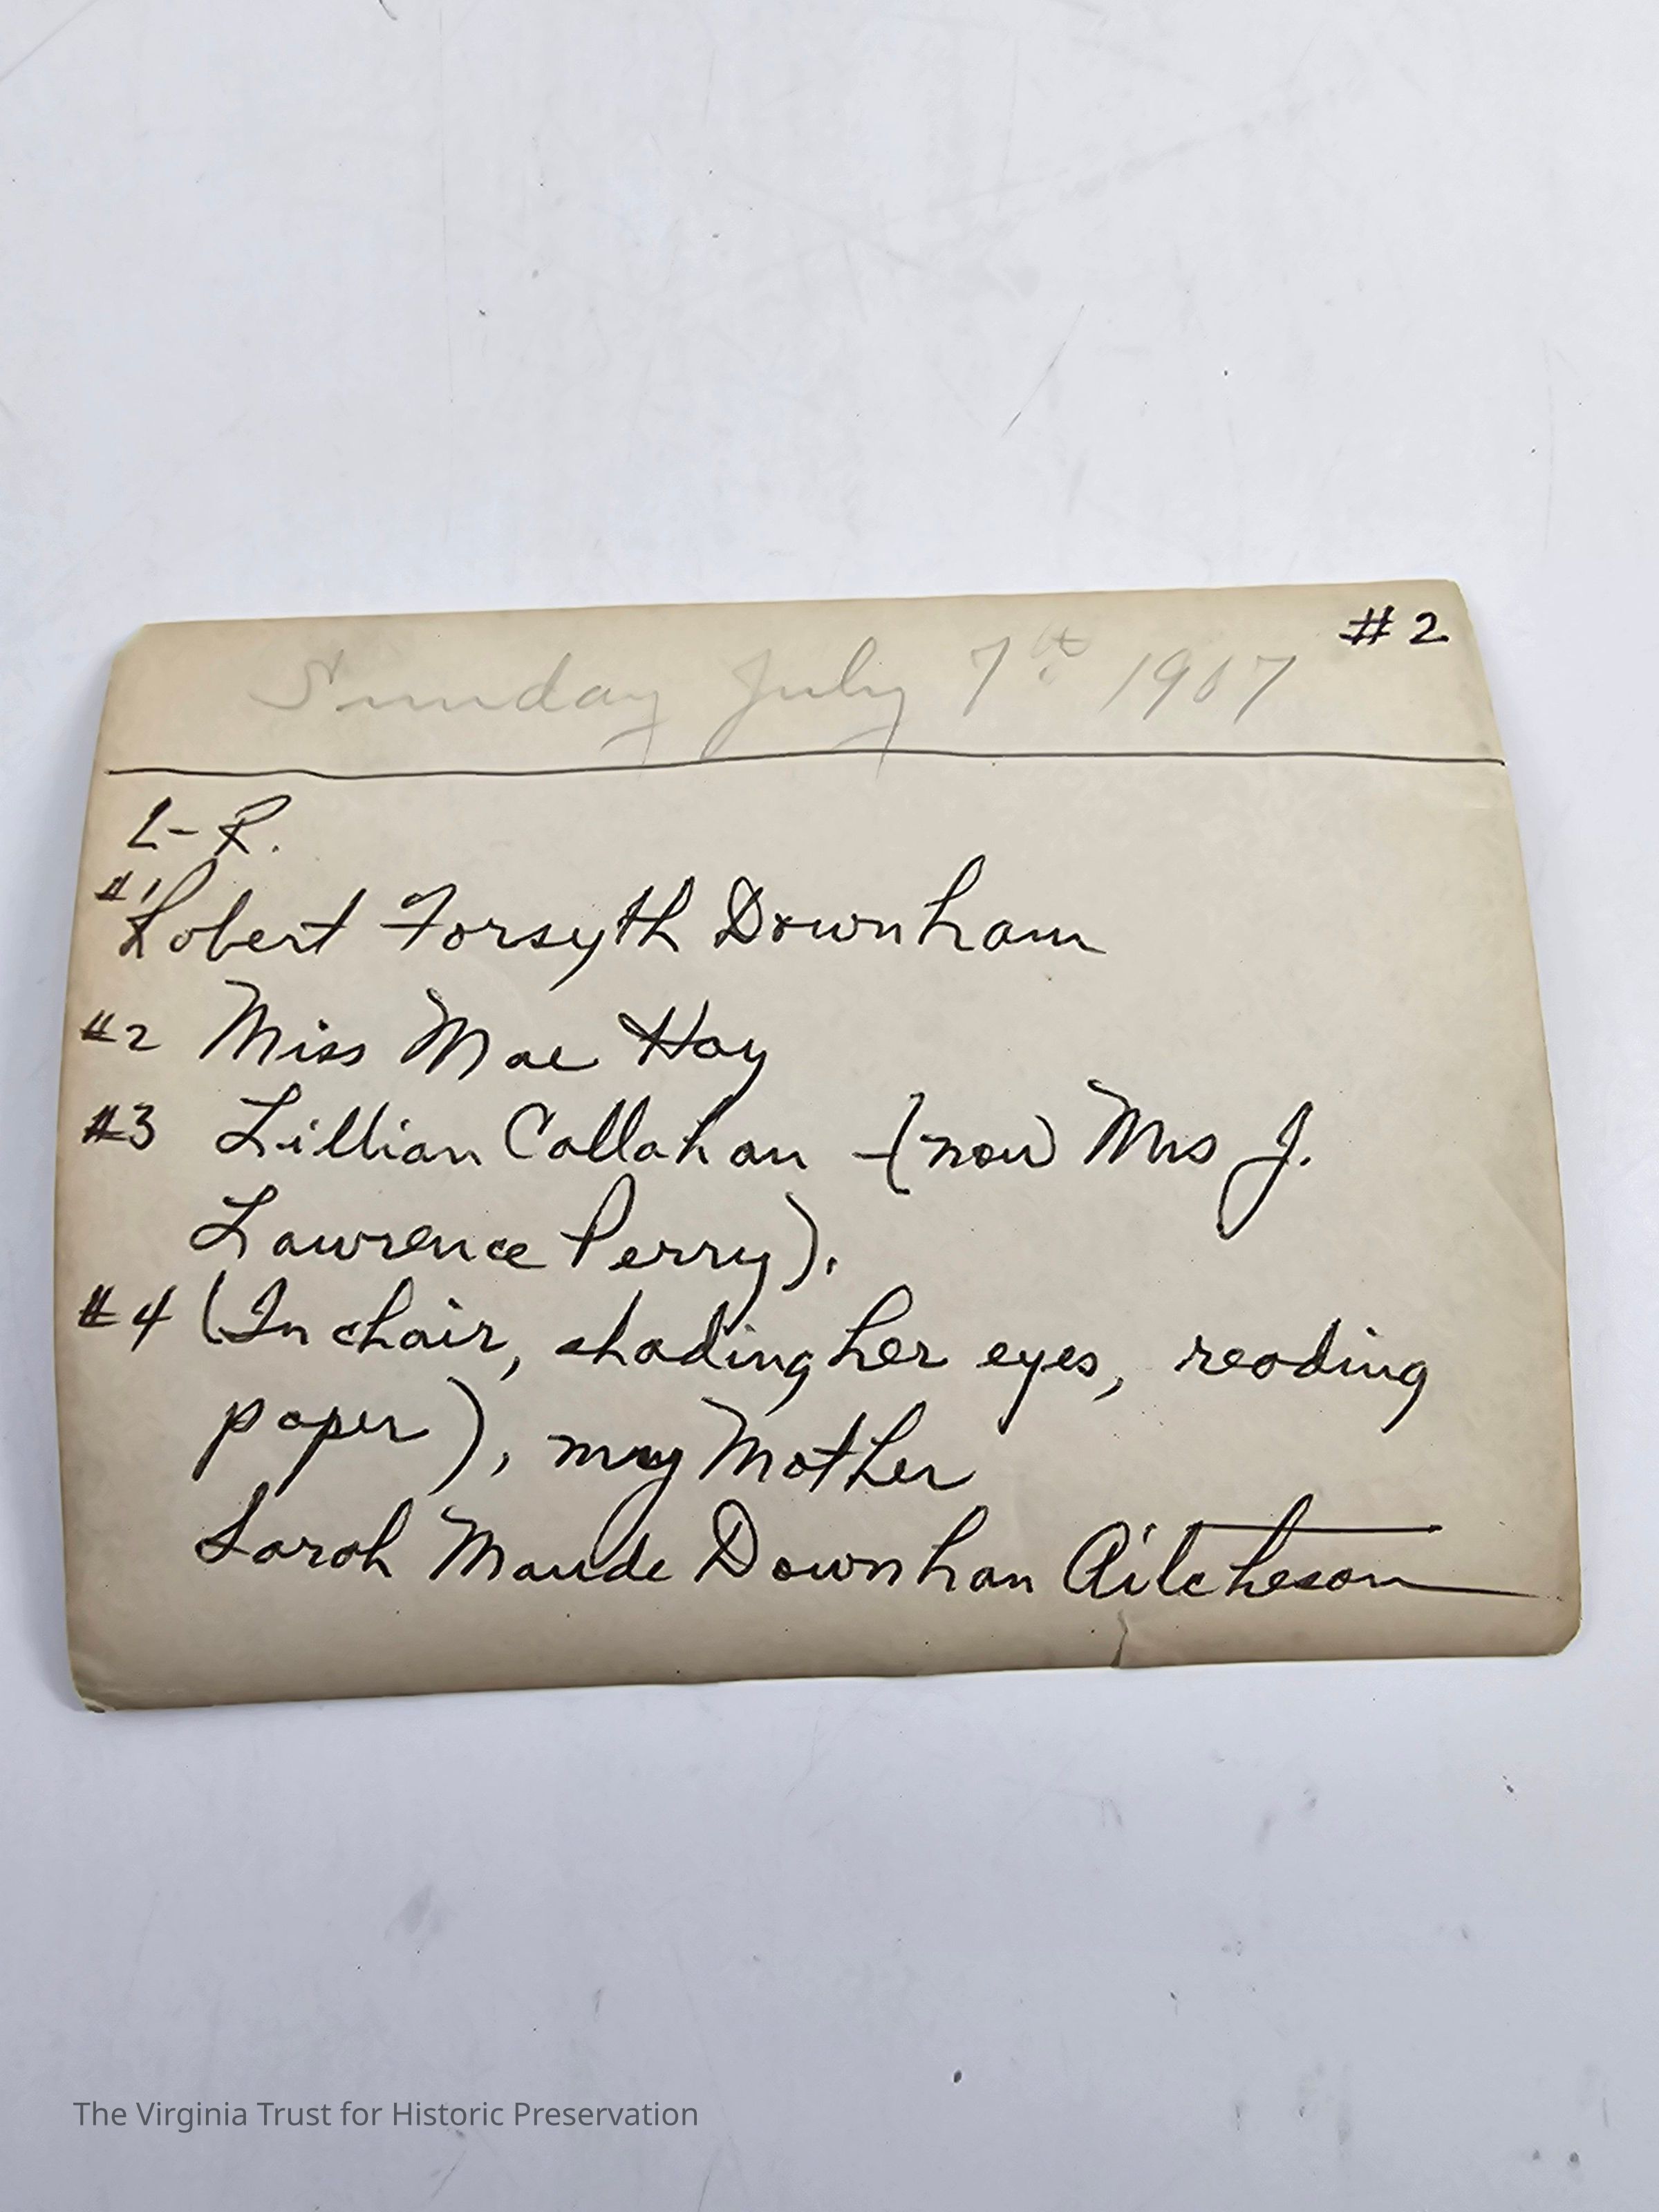 #2
Sunday July 7th 1907
L-R.
#1 Robert Forsyth Downham
#2 Miss Mae Hay
#3 Lillian Callahan - (now Mrs J.
Lawrence Perry).
#4 (In chair, shading her eyes, reading
paper), my Mother
Sarah Maude Downham Aitcheson
The Virginia Trust for Historic Preservation